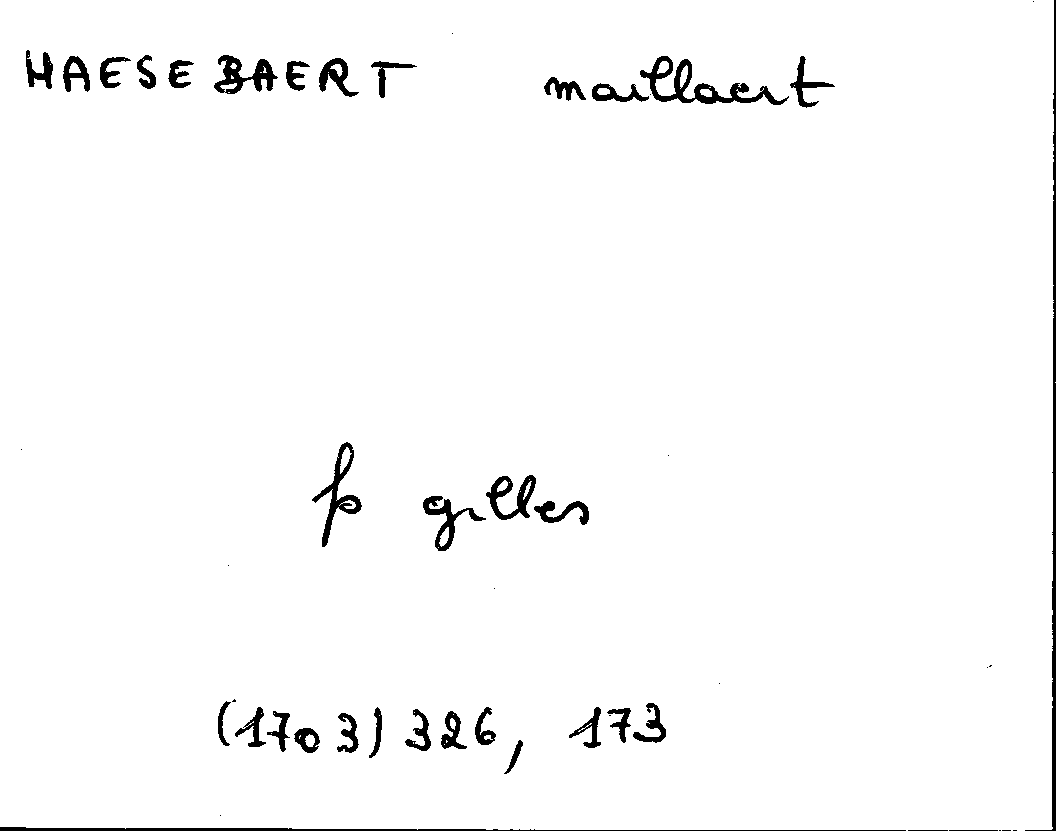 HAESEBAERT maillaert
p gilles
(1703) 326, 173